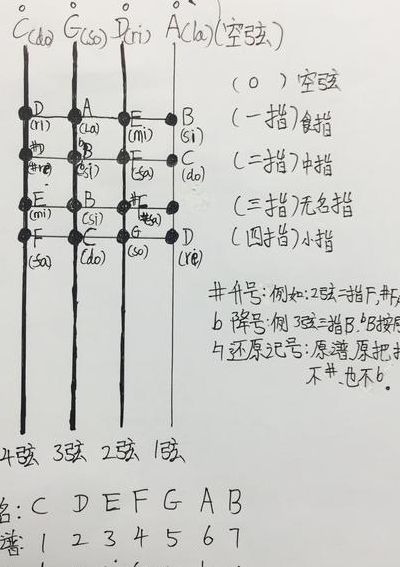 C(do) G(so) D(ri) A(la)(空弦)
(0)空弦
D A E B
(ri) (La) (mi) (si)
(一指)食指
#D bB F C
(#re) (si) (fa) (do)
(二指)中指
E B #F
(mi) (si) (#fa)
(三指)无名指
F C G D
(fa) (do) (so) (re)
(四指)小指
#升号:例如:2弦二指F,#F
b降号:例3弦三指B.bB按
♮还原记号:原谱,原把
不#.也不b。
4弦 3弦 2弦 1弦
名: C D E F G A B
谱: 1 2 3 4 5 6 7